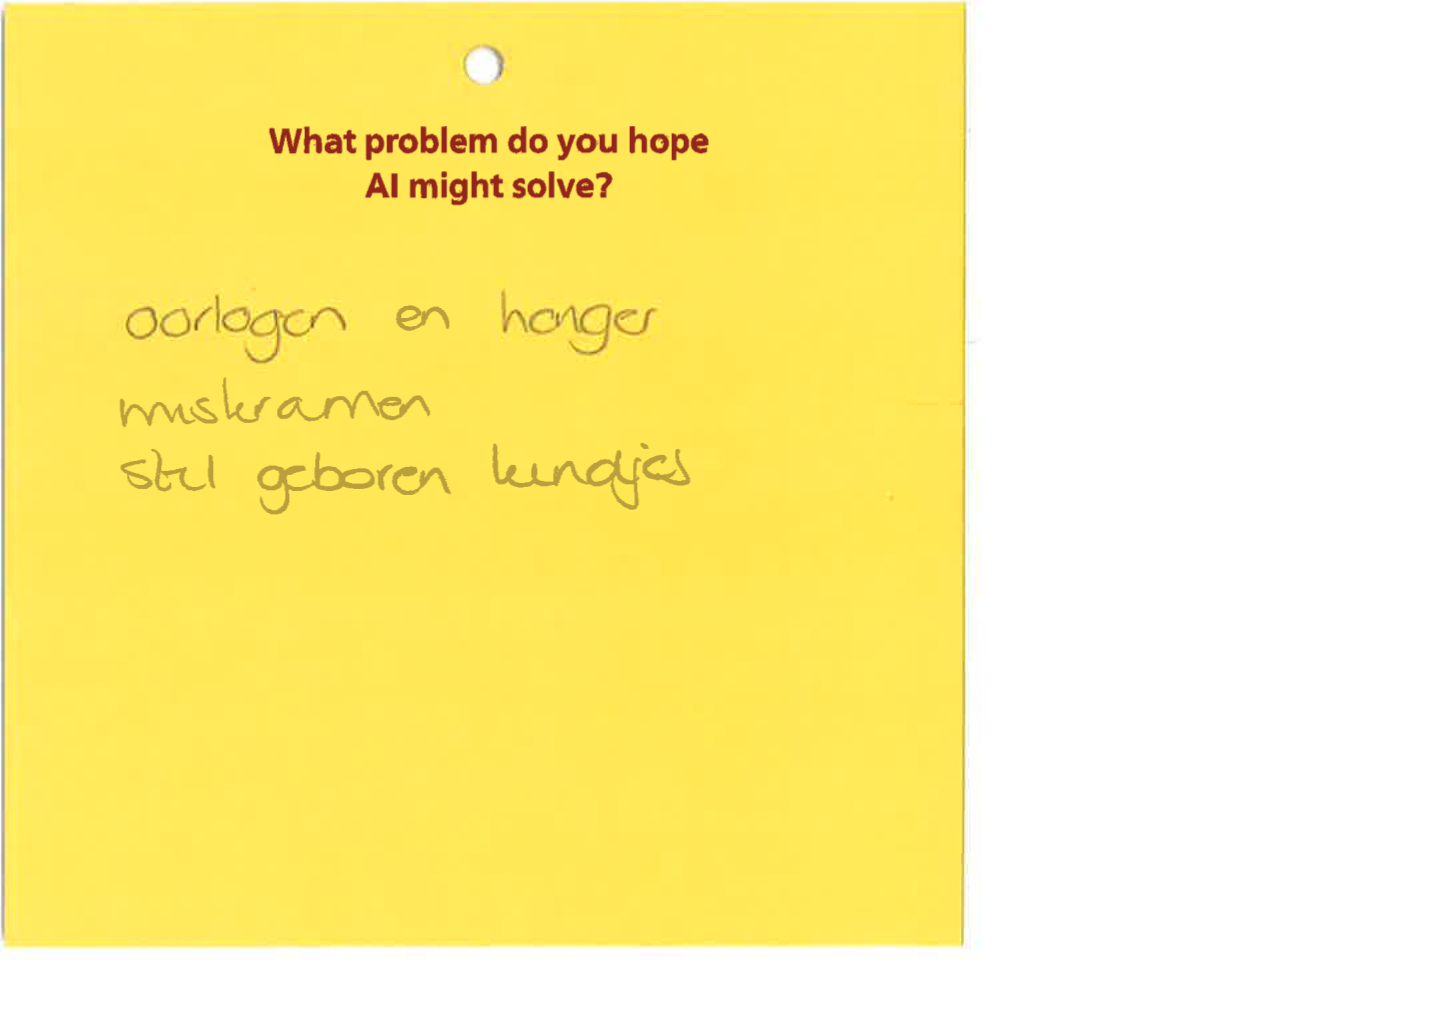 What problem do you hope
AI might solve?
oorlogen en honger
miskramen
stil geboren kindjes